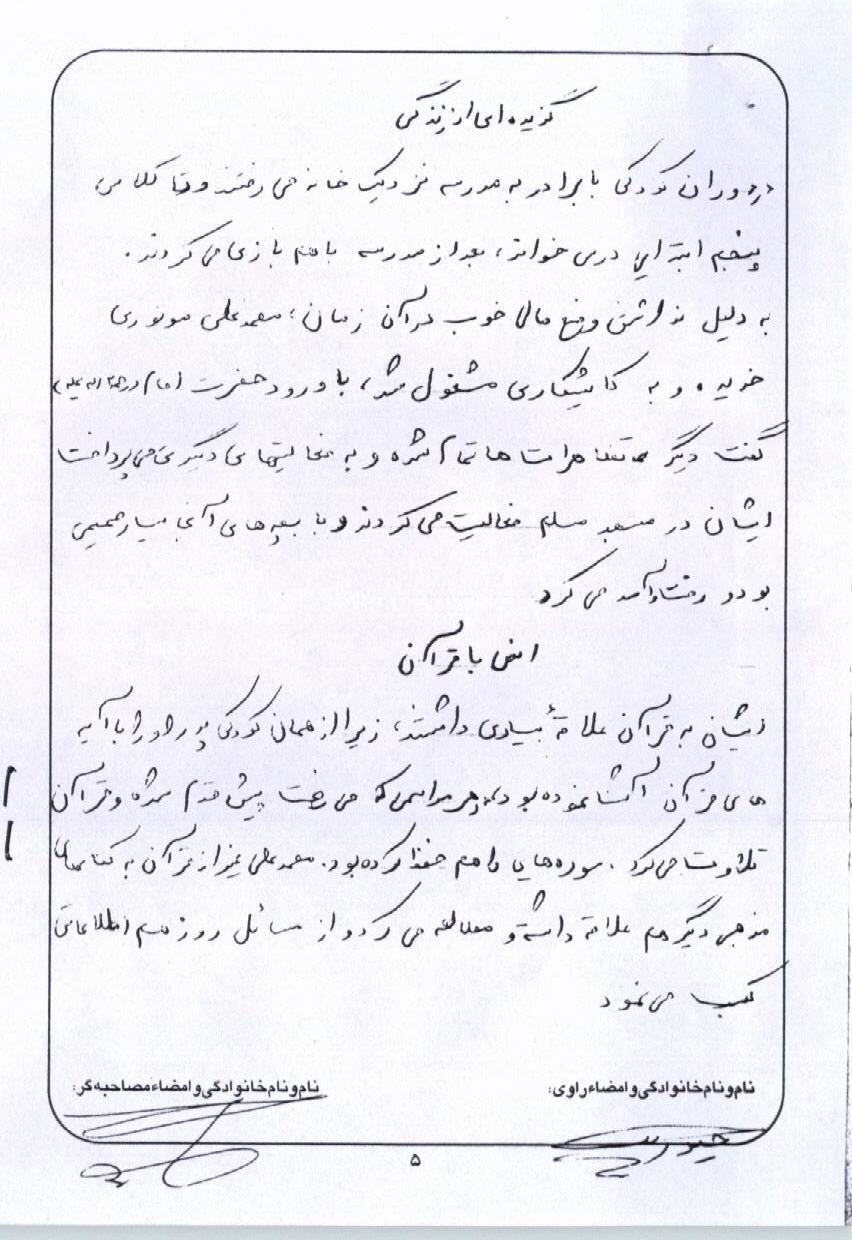 گزیده ای از زندگی
در دوران کودکی با برادر به مدرسه نزدیک خانه می رفتند و تا کلاس
پنجم ابتدایی درس خواند، بعد از مدرسه باهم بازی می کردند.
به دلیل نداشتن وضع مالی خوب در آن زمان، محمدعلی موتوری
خریده و به کاشیکاری مشغول شد، با ورود حضرت امام (رحمة اله علیه)
گفت دیگر تظاهرات ها تمام شده و به فعالیتهای دیگری می پرداخت
ایشان در مسجد مسلم فعالیت می کردند و با بچه های آنجا بسیار صمیمی
بود و رفت و آمد می کرد
انس با قرآن
ایشان به قرآن علاقهٔ بسیاری داشتند، زیرا از همان کودکی پدر او را با آیه
های قرآن آشنا نموده بود و هر مراسمی که می رفت پیش قدم شده و قرآن
تلاوت می کرد. سوره هایی را هم حفظ کرده بود. محمدعلی غیر از قرآن به کتابهای
مذهبی دیگر هم علاقه داشته و مطالعه می کرد و از مسائل روز هم اطلاعاتی
کسب می نمود
نام و نام خانوادگی و امضاء راوی:
نام و نام خانوادگی و امضاء مصاحبه گر:
۵